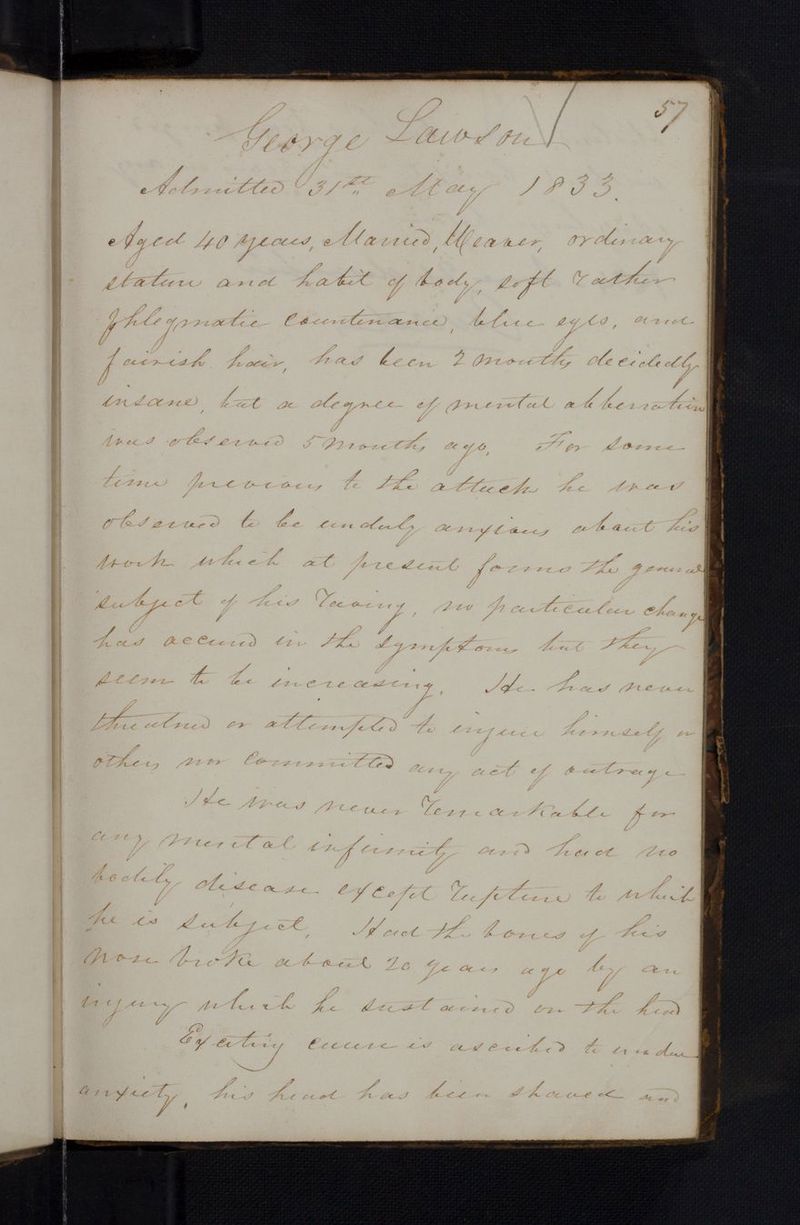 57
George Lawson
Admitted 31st May 1833.
Aged 40 years, Married, Weaver, ordinary
stature and habit of body, soft rather
phlegmatic countenance, blue eyes, and
fairish hair, has been 2 months decidedly
insane, but a degree of mental abberration
was observed 5 months ago, For some
time previous to the attack he was
observed to be unduly anxious about his
work which at present forms the general
subject of his raving, no particular change
has occurred in the symptoms but they
seem to be increasing. He has never
threatned or attempted to injure himself or
others nor committed any act of outrage
He was never remarkable for
any mental infirmity and had no
bodily disease except rupture to which
he is subject, Had the bones of his
nose broke about 20 years ago by an
injury which he sustained on the head
Exciting cause is ascribed to undue
anxiety, his head has been shaved and